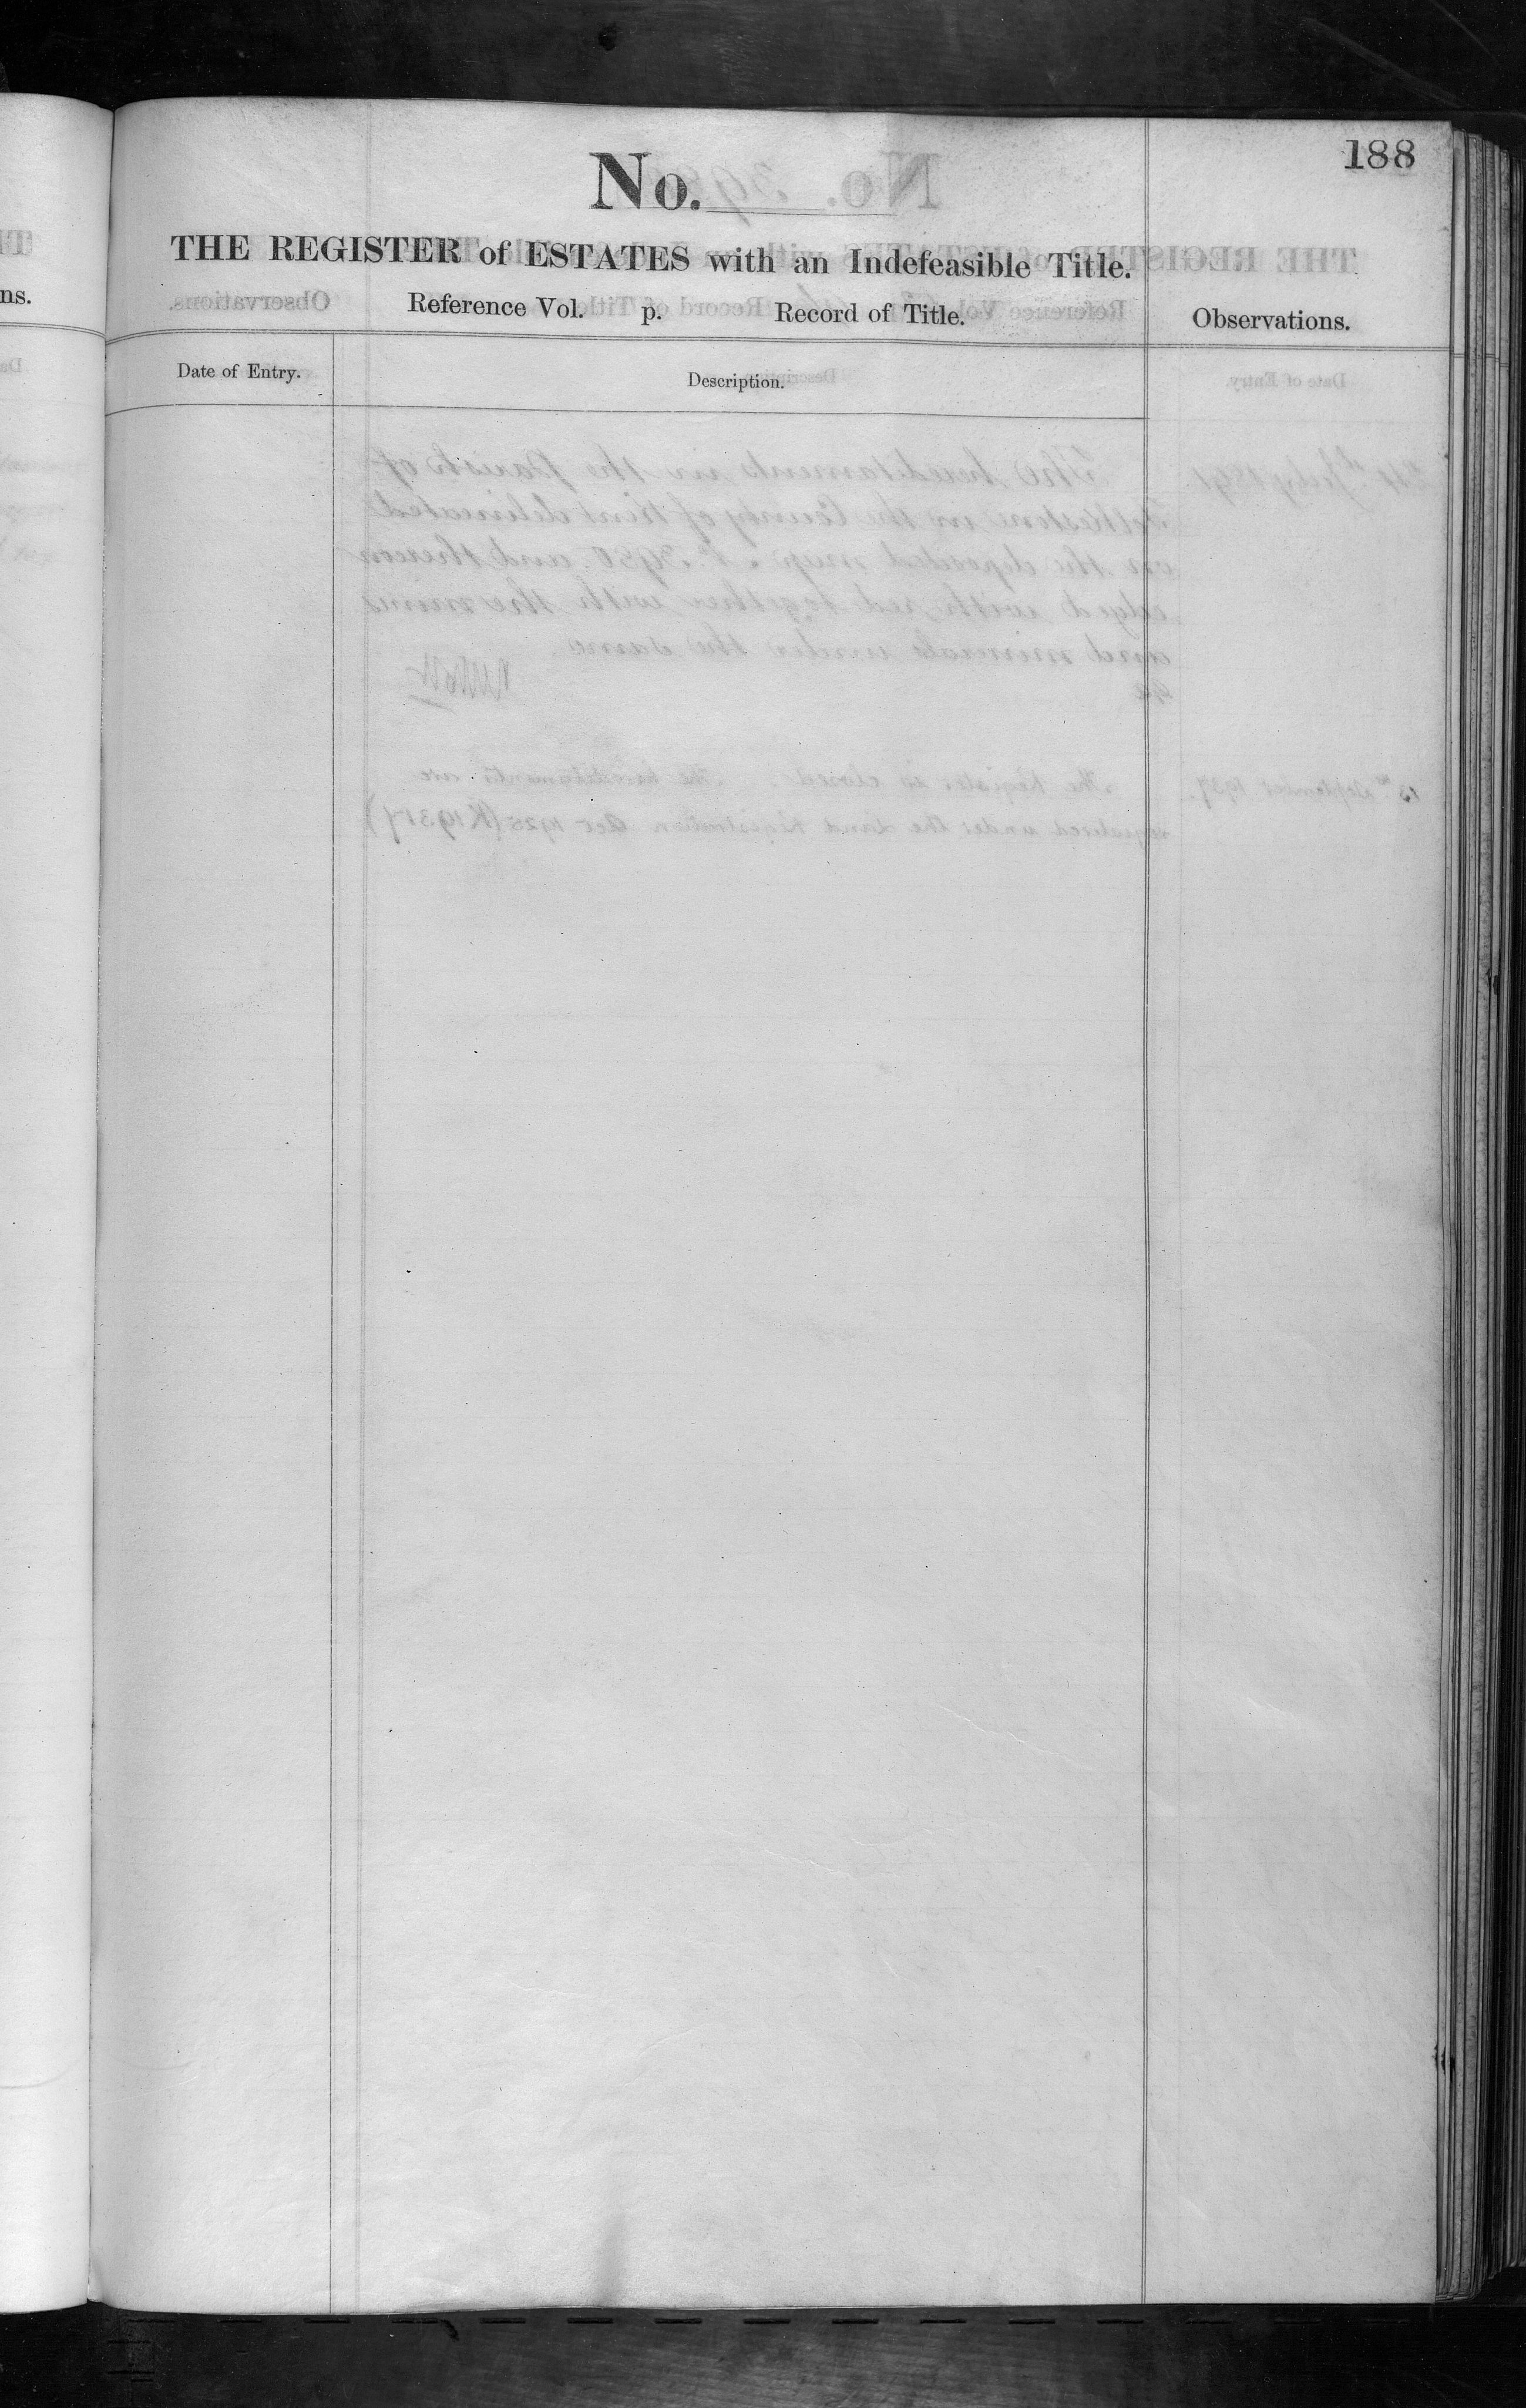 188
No.
THE REGISTER of ESTATES with an Indefeasible Title.
ns.
Reference Vol. p. Record of Title.
Observations.
Date of Entry.
Description.